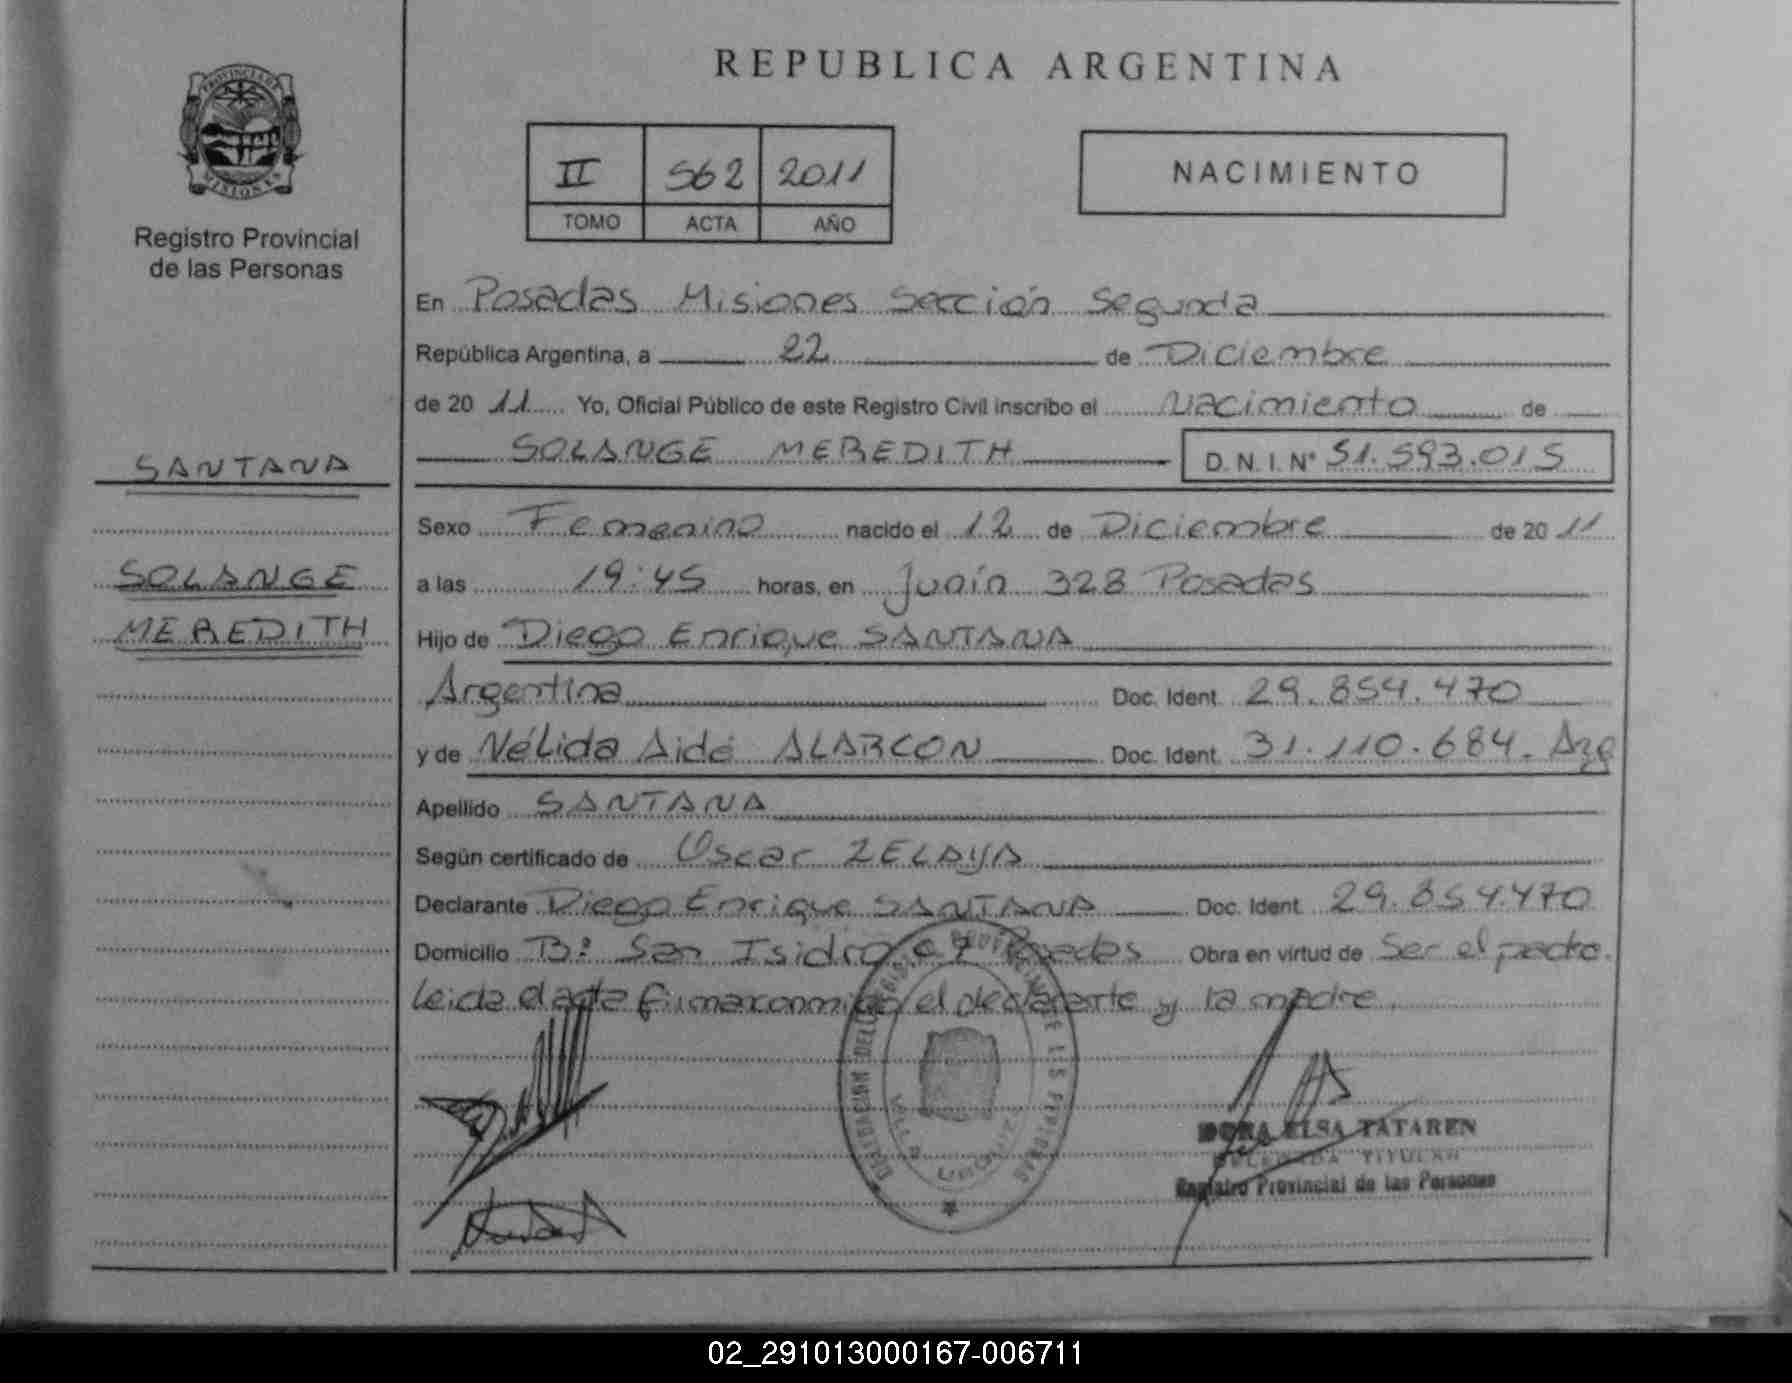 REPUBLICA ARGENTINA
PROVINCIA DE
MISIONES
Registro Provincial
de las Personas
II 562 2011
TOMO ACTA AÑO
NACIMIENTO
En Posadas Misiones Sección Segunda
República Argentina, a 22 de Diciembre
de 20 11 Yo, Oficial Público de este Registro Civil inscribo el Nacimiento de
SOLANGE MEREDITH D.N.I. N° 51.593.015
SANTANA
SOLANGE
MEREDITH
Sexo Femenino nacido el 12 de Diciembre de 20 11
a las 19:45 horas, en Junín 328 Posadas
Hijo de Diego Enrique SANTANA
Argentina Doc. Ident. 29.854.470
y de Nélida Aidé ALARCON Doc. Ident. 31.110.684. Arg
Apellido SANTANA
Según certificado de Oscar ZELAYA
Declarante Diego Enrique SANTANA Doc. Ident. 29.854.470
Domicilio B: San Isidro Posadas Obra en virtud de Ser el padre.
Leida el acta firmaconmigo el declarante y la madre.
DORA ELSA TATAREN
DELEGADA TITULAR
Registro Provincial de las Personas
02_291013000167-006711